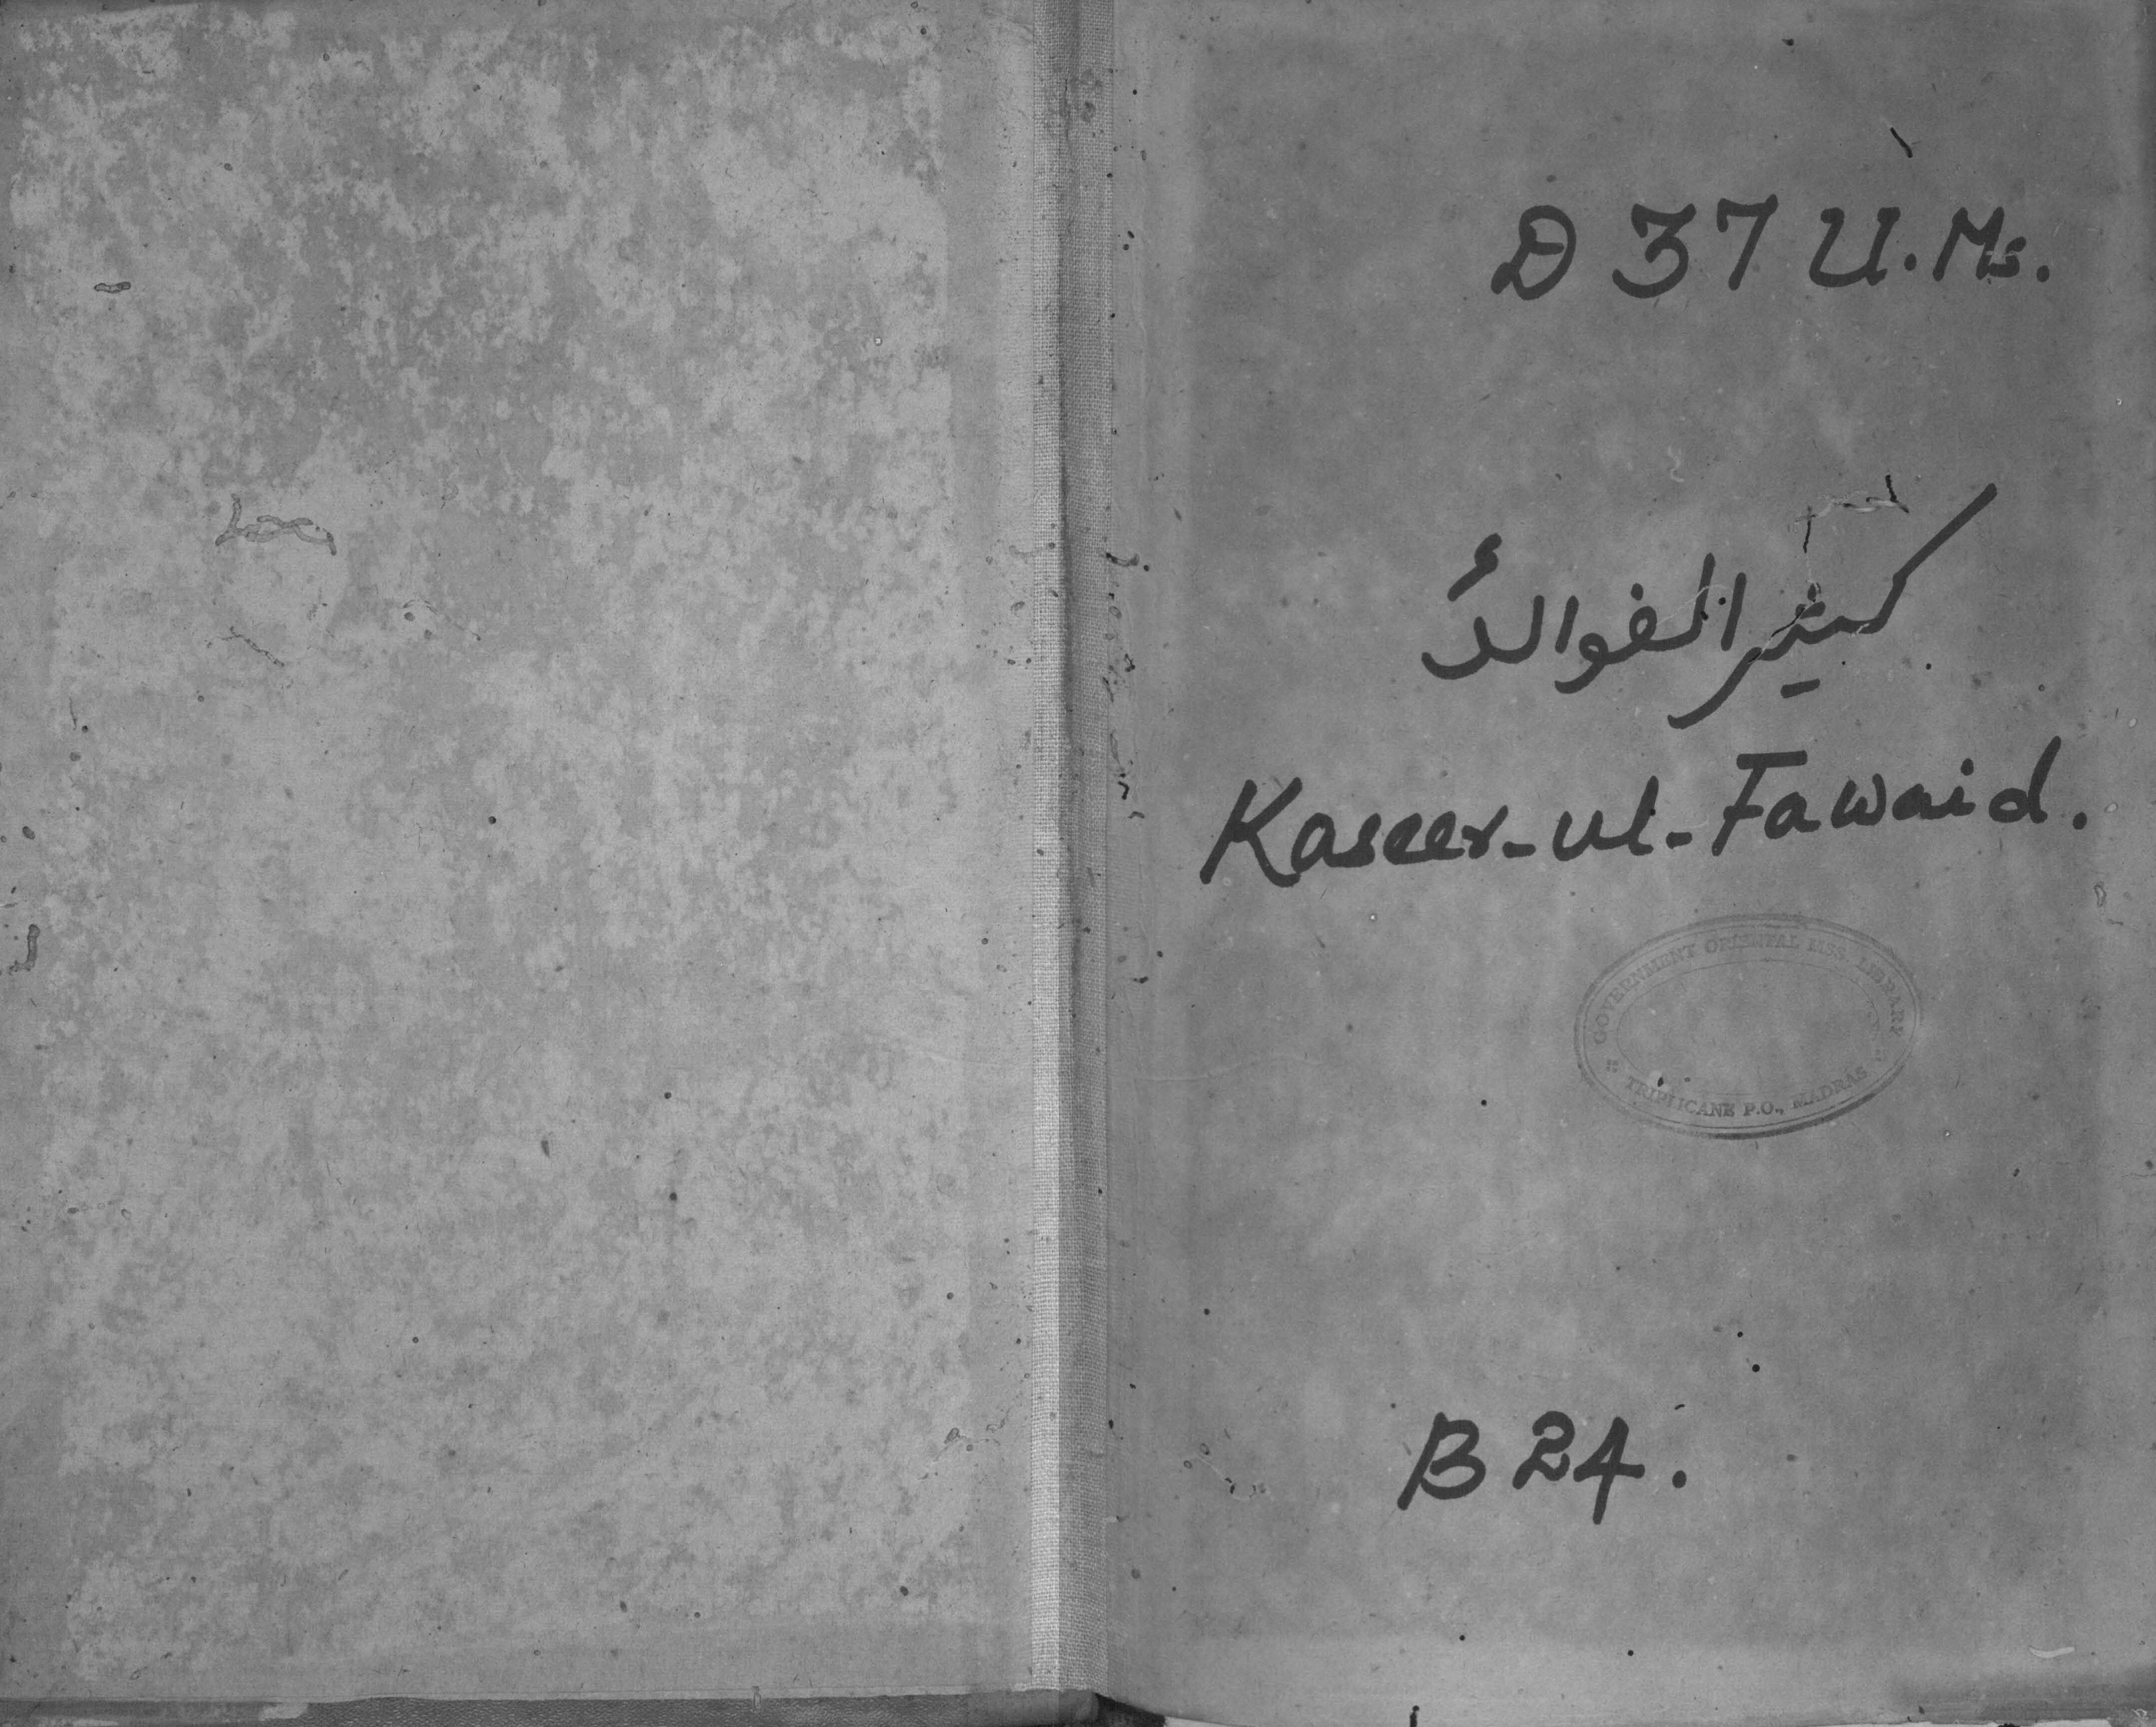 D 37 U. Ms.
کثیر الفوائد
Kaseer-ul-Fawaid.
GOVERNMENT ORIENTAL MSS. LIBRARY
TRIPLICANE P.O., MADRAS
B 24.